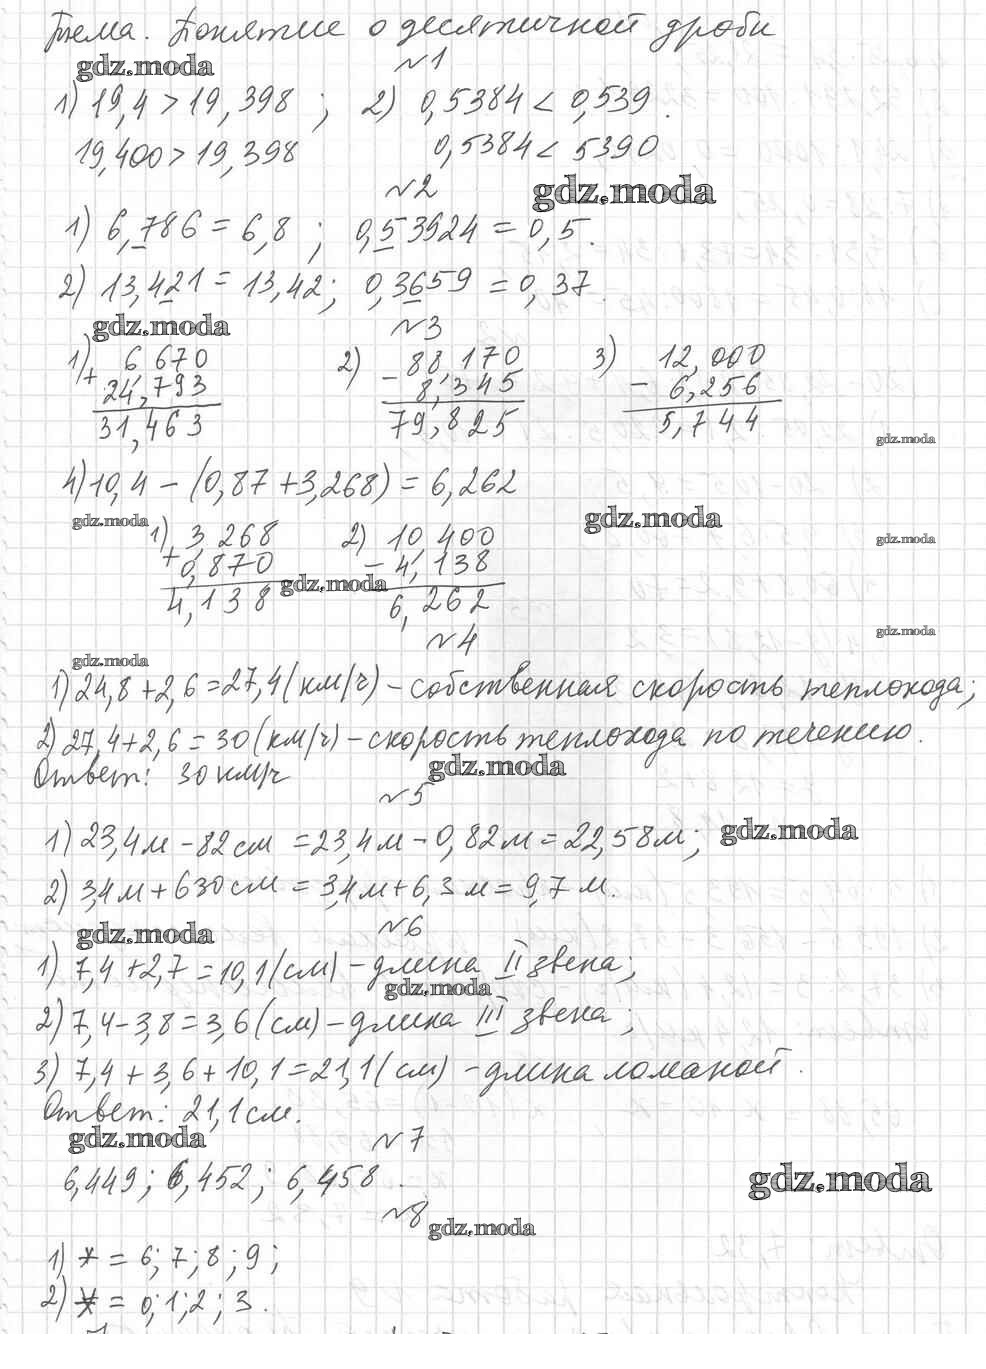 Тема. Понятие о десятичной дроби
gdz.moda
№1
1) 19,4 > 19,398 ; 2) 0,5384 < 0,539.
19,400 > 19,398 0,5384 < 5390
№2 gdz.moda
1) 6,786 = 6,8 ; 0,53924 = 0,5.
2) 13,421 = 13,42; 0,3659 = 0,37.
gdz.moda №3
1) + 6 670 2) - 88,170 3) 12,000
24,793 8,345 - 6,256
31,463 79,825 5,744
gdz.moda
4) 10,4 - (0,87 + 3,268) = 6,262
gdz.moda gdz.moda
1) 3 268 2) 10 400 gdz.moda
+ 0,870 - 4,138
gdz.moda
4,138 6,262
№4 gdz.moda
gdz.moda
1) 24,8 + 2,6 = 27,4 (км/ч) - собственная скорость теплохода;
2) 27,4 + 2,6 = 30 (км/ч) - скорость теплохода по течению.
Ответ: 30 км/ч gdz.moda
№5
1) 23,4 м - 82 см = 23,4 м - 0,82 м = 22,58 м; gdz.moda
2) 3,4 м + 630 см = 3,4 м + 6,3 м = 9,7 м.
gdz.moda №6
1) 7,4 + 2,7 = 10,1 (см) - длина II звена;
gdz.moda
2) 7,4 - 3,8 = 3,6 (см) - длина III звена;
3) 7,4 + 3,6 + 10,1 = 21,1 (см) - длина ломаной.
Ответ: 21,1 см.
gdz.moda №7
6,449; 6,452; 6,458. gdz.moda
№8 gdz.moda
1) * = 6; 7; 8; 9;
2) * = 0; 1; 2; 3.